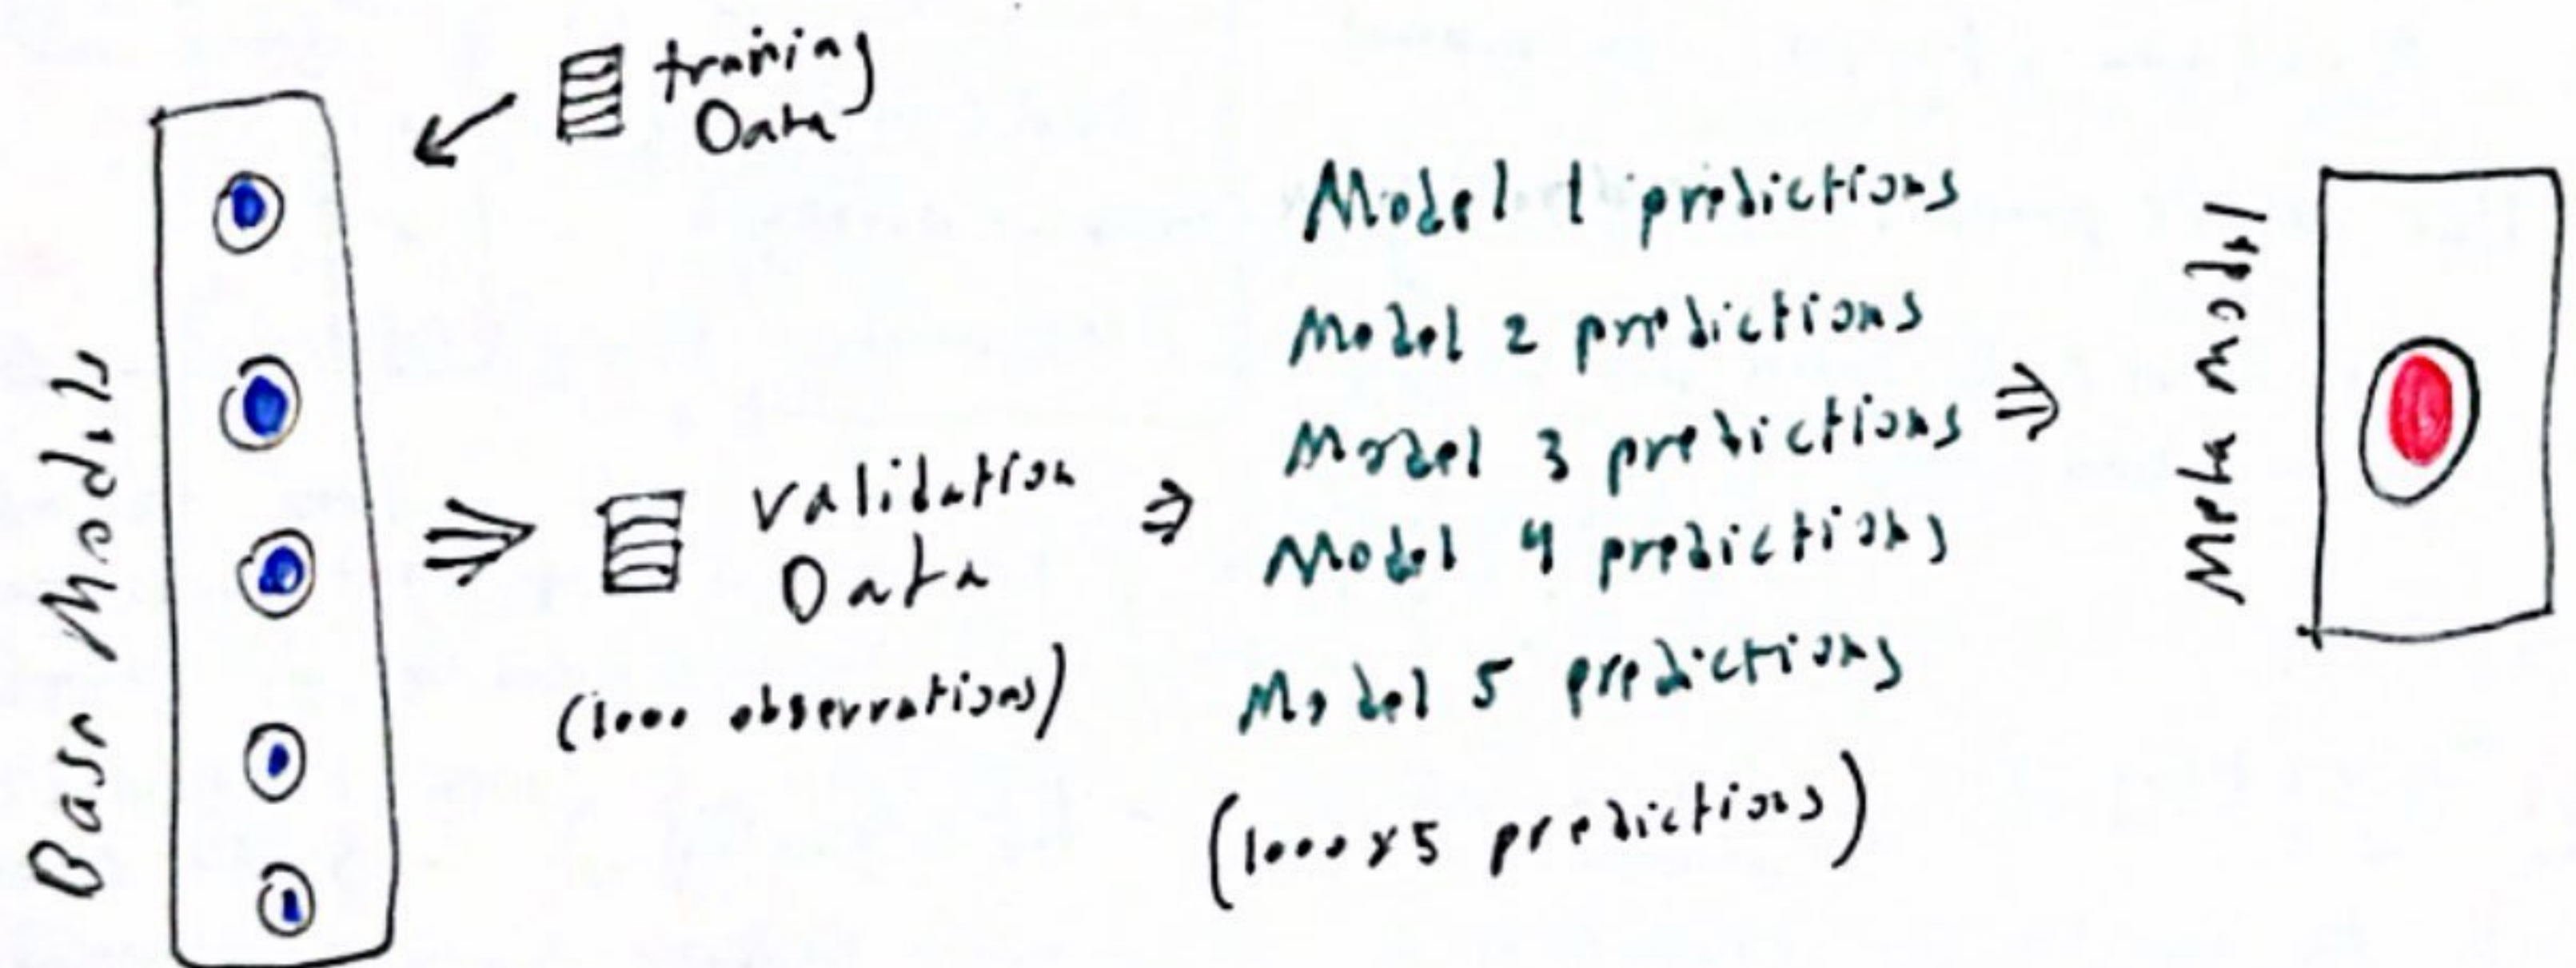 training
Data
Base Models
validation
Data
(1000 observations)
Model 1 predictions
Model 2 predictions
Model 3 predictions
Model 4 predictions
Model 5 predictions
(1000x5 predictions)
Meta model